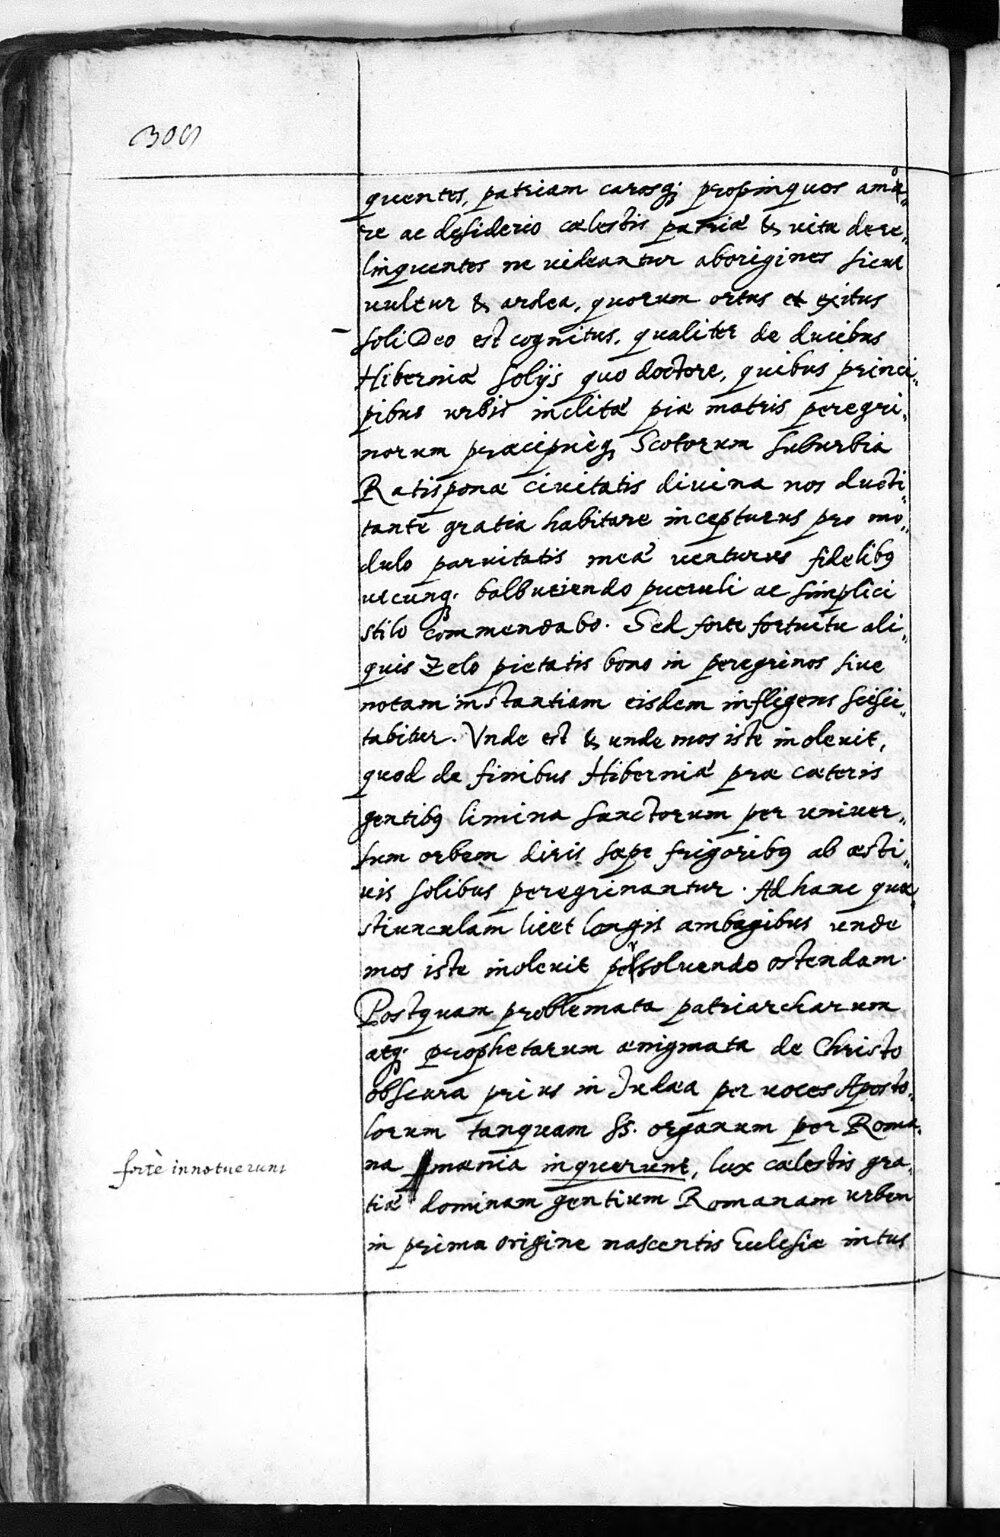 300
quentes, patriam carosq; propinquos amo-
re ac desiderio cælestis patriæ & vita dere-
linquentes ne videantur aborigines sicut
vultur & ardea, quorum ortus et exitus
soli Deo est cognitus. qualiter de ducibus
Hiberniæ solijs quo doctore, quibus princi-
pibus urbis inclitæ piæ matris peregri-
norum præcipuèq; Scotorum suburbia
Ratisponæ civitatis divina nos ducti-
tante gratia habitare incepturus pro mo-
dulo parvitatis meæ venturus fidelibq
utcunq; balbutiendo pueruli ac simplici
stilo commendabo. Sed forte fortuitu ali-
quis Zelo pietatis bono in peregrinos sive
notam instantiam eisdem infligens scisci-
tabitur. Vnde est & unde mos iste inolevit,
quod de finibus Hiberniæ præ cæteris
gentibq limina Sanctorum per univer-
sum orbem diris sæpe frigoribq ab æsti-
vis solibus peregrinantur. Ad hanc quæ-
stiunculam licet longis ambagibus unde
mos iste inolevit persolvendo ostendam.
Postquam problemata patriarcharum
atq; prophetarum ænigmata de Christo
obscura prius in Iudæa per voces Aposto-
lorum tanquam SS. organum per Roma-
na mænia inquerunt, lux cælestis gra-
forte innotuerunt
tiæ dominam gentium Romanam urbem
in prima origine nascentis Ecclesiæ intus